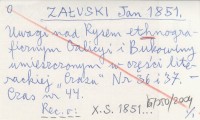 ZAŁUSKI Jan 1851.
Uwagi nad Rysem ethnogra-
ficznym Galicyi i Bukowiny
umieszczonym w części lite-
rackiej "Czasu" Nr 36 i 37. -
Czas nr 44.
Rec. o: X.S. 1851...